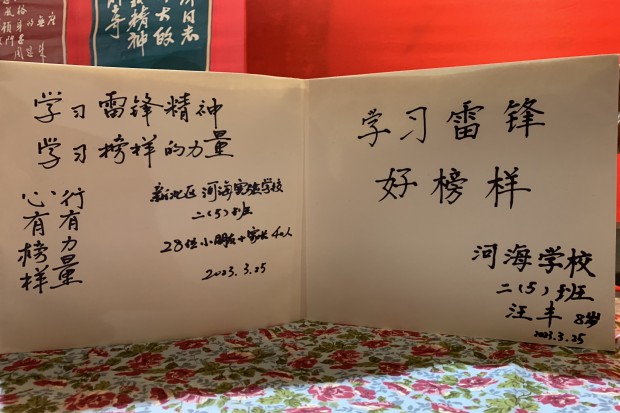 学习雷锋精神
学习榜样的力量
心有榜样
行有力量
新北区河海实验学校
二(5)班
28位小朋友+家长40人
2023.3.25
学习雷锋
好榜样
河海学校
二(5)班
汪丰 8岁
2023.3.25